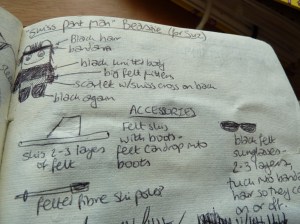 "Swiss Pont Man" Beanie (for Suz)
Black hair
bandana
black united body
big felt mittens
scarlet w/swiss cross on back
black again
ACCESSORIES
skis 2-3 layers
of felt
Felt skis
with boots -
feet can drop into
boots
black felt
sunglasses -
2-3 layers,
tuck into
hair so they
on or off.
felted fibre ski poles?